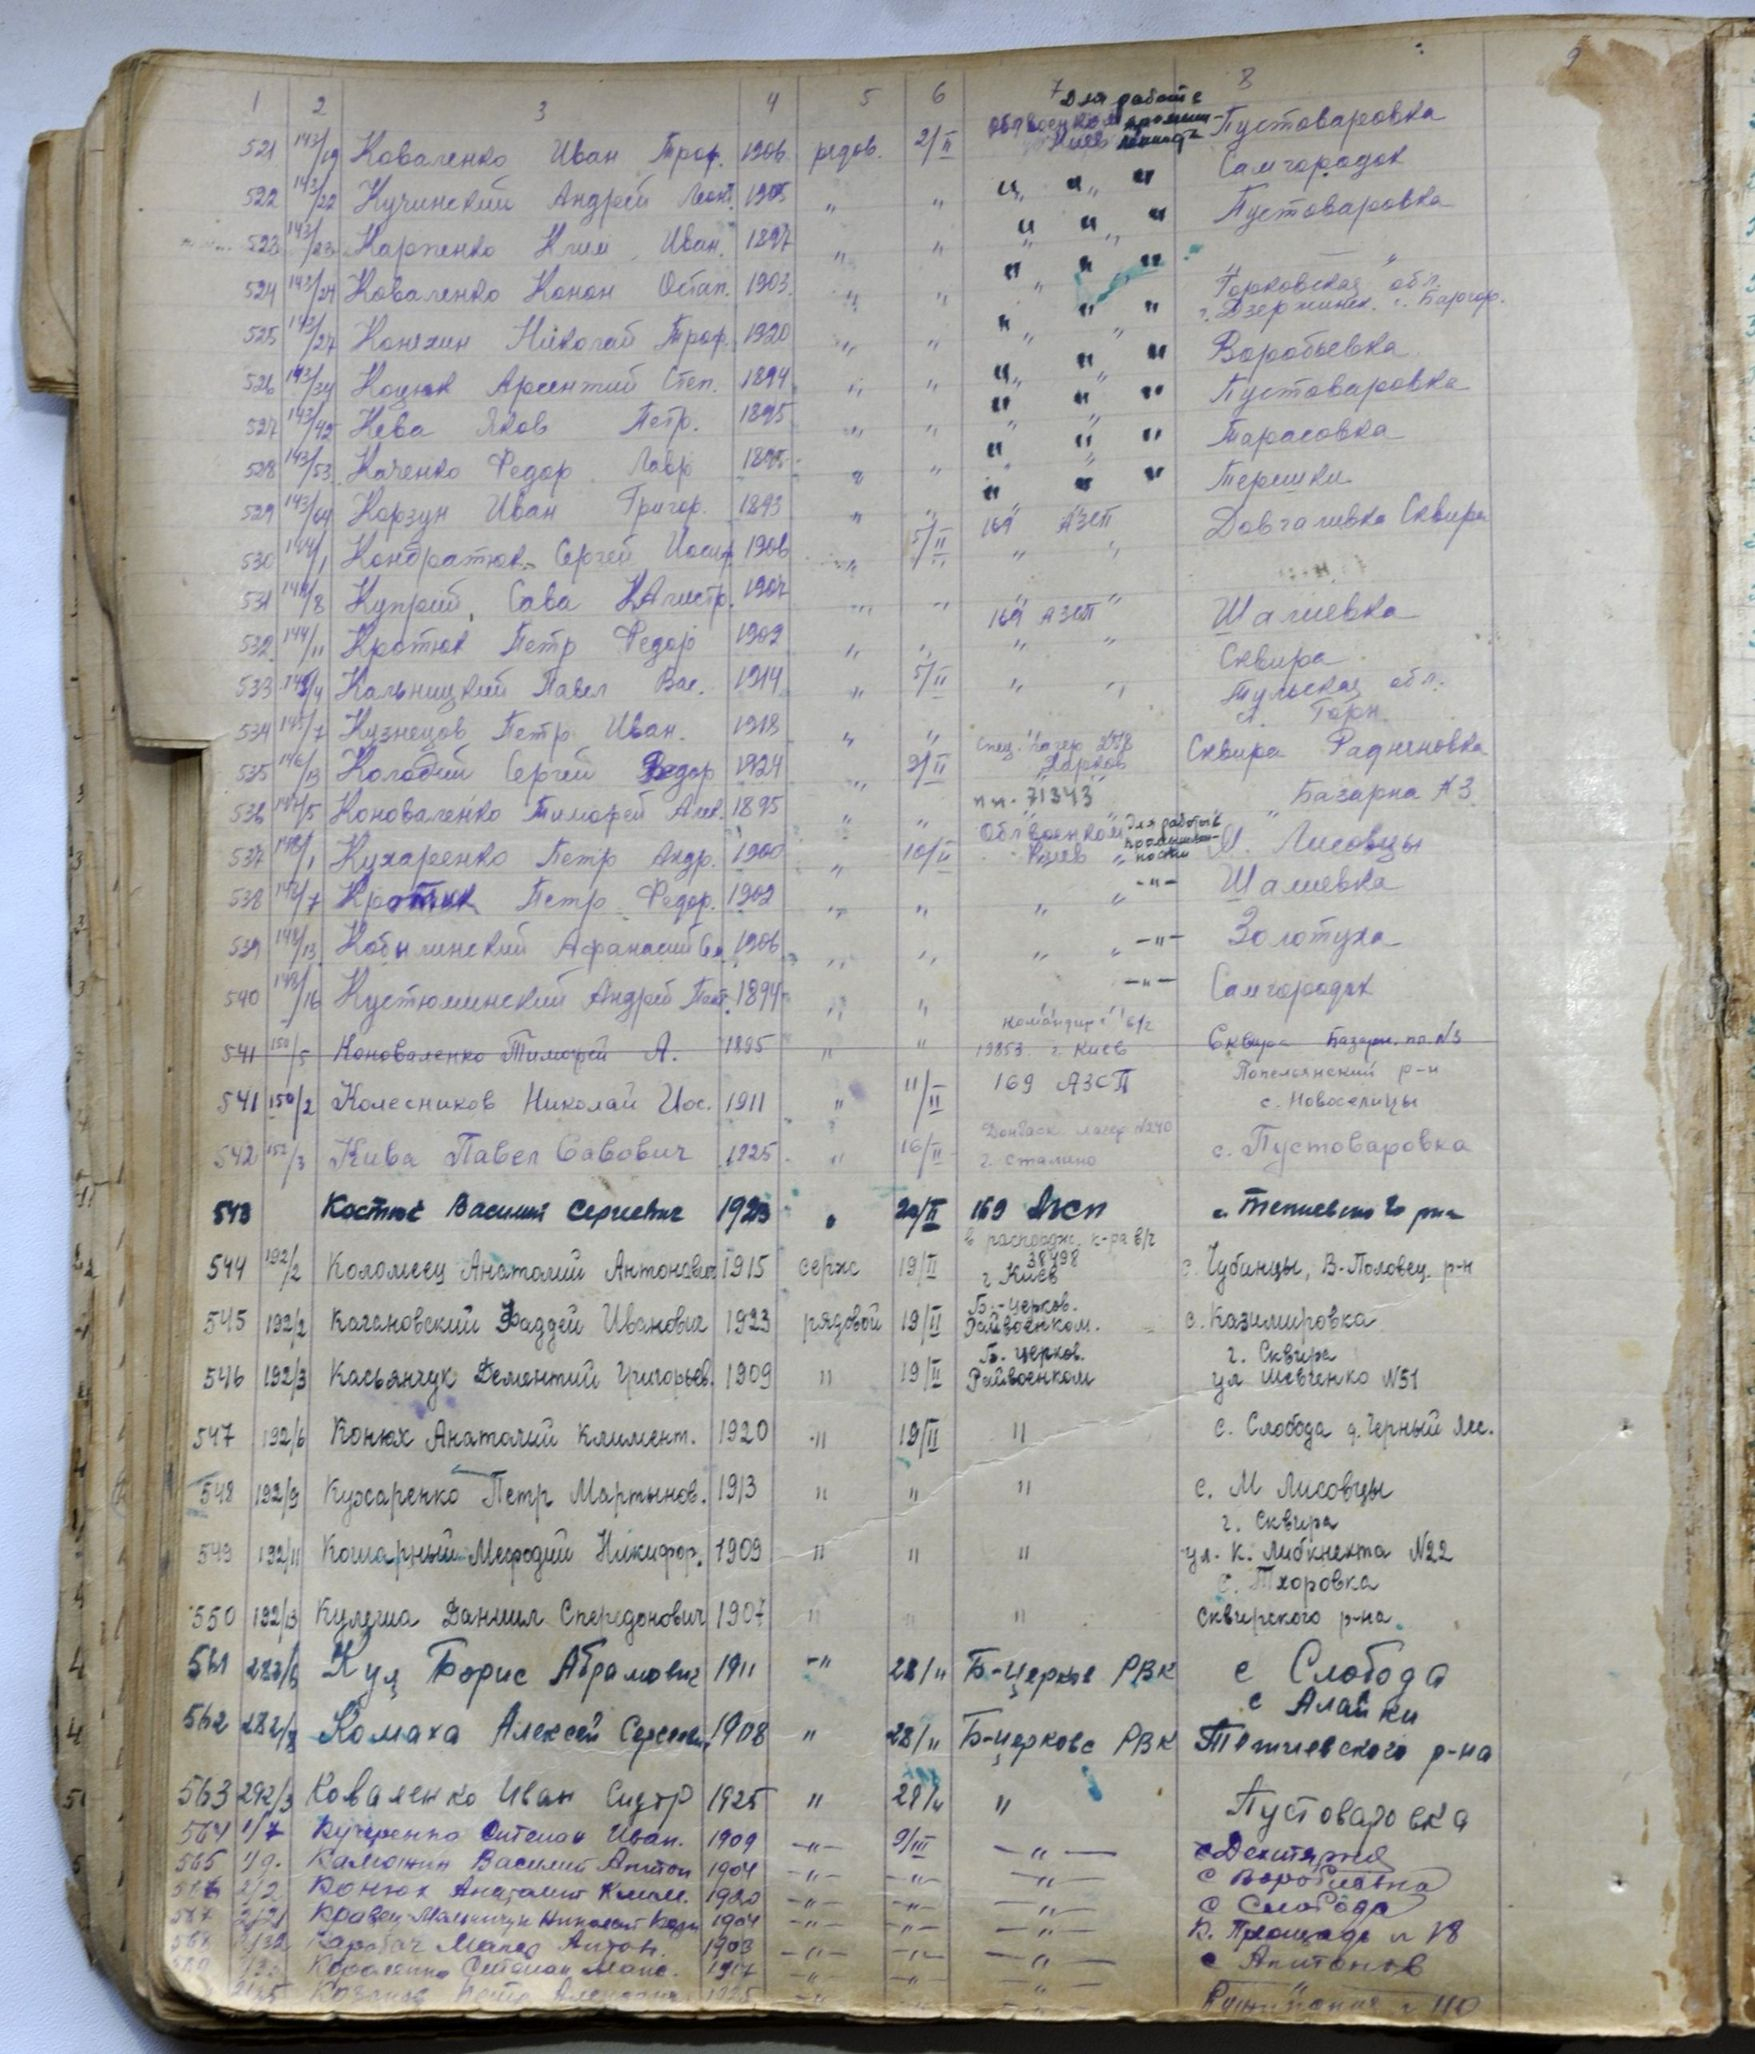 9
1 2 3 4 5 6 7 8
Для работ в
521 143/19 Коваленко Иван Троф. 1906 рядов. 2/II Облвоенком Киев Пустоваровка
522 143/22 Кучинский Андрей Леонт. 1905 " " " " " Самгородок
523 143/23 Карпенко Клим Иван. 1897 " " " " " Пустоваровка
524 143/24 Коваленко Конон Остап. 1903 " " " " " "
Горковская обл.
525 143/27 Конихин Николай Троф. 1920 " " " " " г. Дзержинск
526 143/34 Коцюк Арсентий Степ. 1894 " " " " " Воробьевка
527 143/42 Кева Яков Петр. 1895 " " " " " Пустоваровка
528 143/53 Каченко Федор Лавр 1895 " " " " " Тарасовка
529 143/64 Корзун Иван Григор. 1893 " " " " " Терешки
530 144/1 Кондратюк Сергей Иосиф 1906 " 5/II 169 АЗСП Довгаливка Сквира
531 144/8 Куприй Сава 1907 " " " "
532 144/11 Кротюк Петр Федор 1902 " " 169 АЗСП Шалиевка
533 145/4 Кальницкий Павел Вас. 1914 " 5/II " " Сквира
Тульская обл.
534 145/7 Кузнецов Петр Иван. 1918 " " " " Горн.
535 146/13 Колодий Сергей Федор 1924 " 9/II Спец. лагер 258 Харков Сквира
536 147/5 Коноваленко Тимофей Алек. 1895 " " п.п. 71343 " Базарна №3
537 148/1 Кухаренко Петр Андр. 1900 " 10/II Облвоенком Киев Для работы в М. Лисовцы
538 148/7 Кротюк Петр Федор. 1902 " " " " -"- Шалиевка
539 148/13 Кобылинский Афанасий 1906 " " " " -"- Золотуха
540 148/16 Кустюминский Андрей 1894 " " -"- Самгородок
командир в/ч
541 150/5 Коноваленко Тимофей А. 1895 " " 19853 г. Киев Сквира Базарн. пл. №3
Попельянский р-н
541 150/2 Колесников Николай Иос. 1911 " 11/II 169 АЗСП с. Новоселицы
Донбаск. лагер №240
542 152/3 Кива Павел Савович 1925 " 16/II г. Сталино с. Пустоваровка
543 Костюк Василий Сергиевич 1923 " 20/II 169 АЗСП
в распоряж. к-ра в/ч
38498
544 192/2 Коломеец Анатолий Антонович 1915 серж 19/II г. Киев с. Чубинцы, В-Половец. р-н
Б.-церков.
545 192/2 Качановский Фаддей Иванович 1923 рядовой 19/II Райвоенком. с. Казимировка
Б. церков. г. Сквира
546 192/3 Касьянчук Дементий Григорьев. 1909 " 19/II Райвоенком ул Шевченко №51
547 192/6 Конюх Анатолий Климент. 1920 " 19/II " с. Слобода
548 192/9 Кухаренко Петр Мартынов. 1913 " " " с. М Лисовцы
г. Сквира
549 192/11 Кошарный Мефодий Никифор. 1909 " " " ул. К. Либкнехта №22
с. Тхоровка
550 192/13 Кулеша Даниил Спередонович 1907 " " " сквирского р-на.
561 282/6 Куц Борис Абрамович 1911 -" 28/II Б-Церков РВК с Слобода
с Алайки
562 282/8 Комаха Алексей Сергеевич 1908 " 28/II Б-церковс РВК Тетиевского р-на
563 292/3 Коваленко Иван Сидор 1925 " 28/II " Пустоваровка
564 1/7 Кучеренко Степан Иван. 1909 -"- 9/III -"-
565 1/9 Василий Антон 1904 -"- -"- -"- с Воробиевка
2/2 Конюх Анатолий Клим. 1920 -"- -"- -"- с Слобода
567 2/21 Кравец Николай 1904 -"- -"- -"- К. Площадь
Антон. 1903 -"- -"- -"- с Антонов
Коваленко Степан 1907 -"- -"- -"-
Петр 1925 -"- "